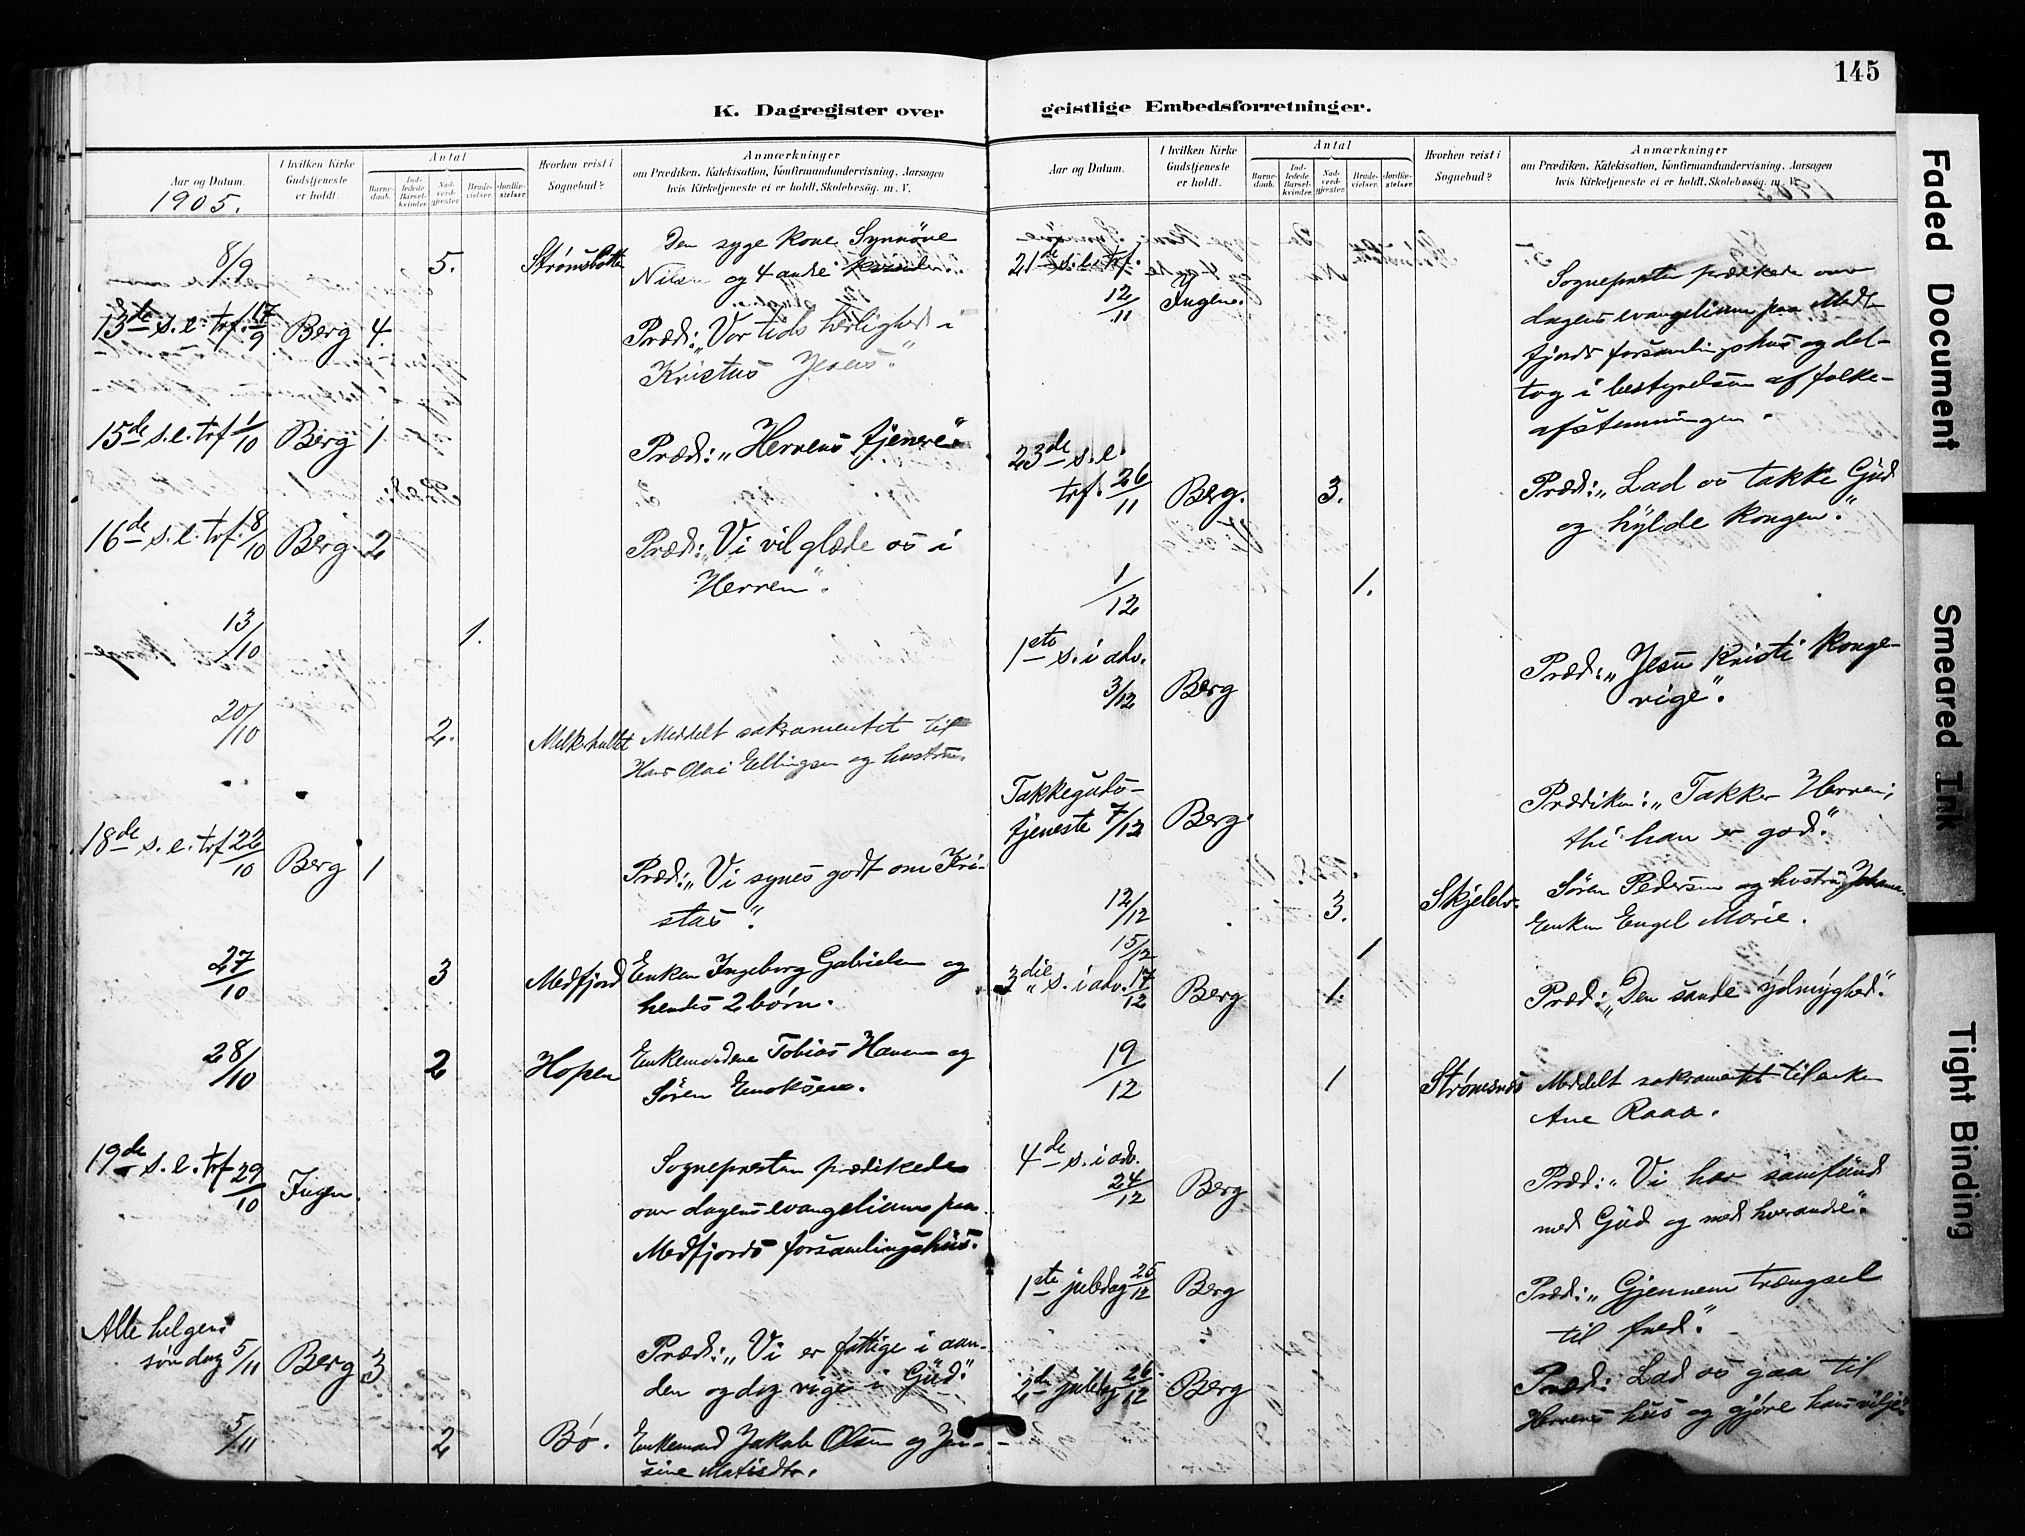 145
K. Dagregister over
geistlige Embedsforretninger.
Aar og Datum.
I hvilken Kirke
Gudstjeneste
er holdt.
Antal
Barne-
daab.
Ind-
ledede
Barsel-
kvinder.
Nad-
verd-
gjester.
Brude-
vielser.
Jordfæ-
stelser.
Hvorhen reist i
Sognebud?
Anmærkninger
om Prædiken, Katekisation, Konfirmandundervisning, Aarsagen
hvis Kirketjeneste ei er holdt, Skolebesøg, m. V.
1905.
8/9 5. Strømsbotn Den syge kone Synnöve
Nilsen og 4 andre
13de s. e. trf. 17/9 Berg 4. Præd: „Vor tids herlighed i
Kristus Jesus“.
15de s. e. trf 1/10 Berg 1 Præd: „Herrens tjenere“.
16de s. e. trf. 8/10 Berg 2 Præd: „Vi vil glæde os i
Herren“.
13/10 1.
20/10 2. Meddelt sakramentet til
Hans Olai Ellingsen og hustru.
18de s. e. trf 22/10 Berg 1
Præd: „Vi synes godt om Kri-
stus“.
27/10 3 Medfjord Enken Ingeborg Gabrielsen og
hendes 2 børn.
28/10 2 Hopen Enkemændene Tobias Hansen og
Søren Enoksen.
19de s. e. trf 29/10 Ingen. Sognepresten prædikede
over dagens evangelium paa
Medfjords forsamlingshus.
Alle helgens
søndag 5/11 Berg 3 Præd: „Vi er fattige i aan-
den og dog rige i Gud“
5/11 2 Bø. Enkemand Jakob Olsen og Jen-
sine Matisdtr.
Aar og Datum.
I hvilken Kirke
Gudstjeneste
er holdt.
Antal
Barne-
daab.
Ind-
ledede
Barsel-
kvinder.
Nad-
verd-
gjester.
Brude-
vielser.
Jordfæ-
stelser.
Hvorhen reist i
Sognebud?
Anmærkninger
om Prædiken, Katekisation, Konfirmandundervisning, Aarsagen
hvis Kirketjeneste ei er holdt, Skolebesøg, m. V.
21de s. e. trf.
12/11 Ingen. Sognepresten prædikede over
dagens evangelium paa Med-
fjords forsamlingshus og del-
tog i bestyrelsen af folke-
afstemningen.
23de s. e.
trf. 26/11 Berg. 3. Præd: „Lad os takke Gud
og hylde kongen“.
1/12 1.
1ste s. i adv.
3/12 Berg Præd: „Jesu Kristi konge-
rige“.
Takkeguds-
tjeneste 7/12 Berg. Prædiken: „Takker Herren;
thi han er god“.
12/12 3. Skjelelv. Søren Pedersen og hustru Johanna.
Enken Engel Marie.
15/12 1
3die s. i adv. 17/12 Berg 1. Præd: „Den sande ydmyghed“.
19/12 1 Strømsnes Meddelt sakramentet til enken
Ane Raaa.
4de s. i adv.
24/12 Berg Præd: „Vi har samfund
med Gud og med hverandre“.
1ste juledag 25/12 Berg Præd: „Gjennem trængsel
til fred“.
2den juledag 26/12 Berg Præd: Lad os gaa til
Herrens hus og gjøre hans vilje“
Faded Document
Smeared Ink
Tight Binding